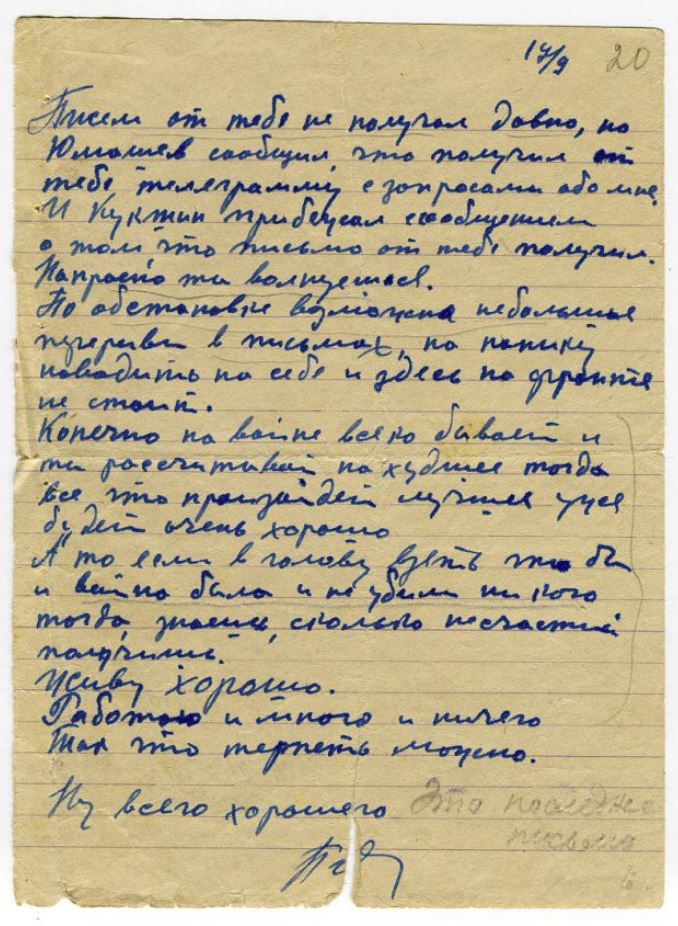 17/9 20
Писем от тебе не получал давно, но
Юмашев сообщил, что получил от
тебе телеграмму с запросами обо мне.
И Куктин прибежал с сообщением
о том, что письмо от тебе получил.
Напрасно ты волнуешься.
По обстановке возможна небольшие
перерывы в письмах, но панику
наводить на себе и здесь на фронте
не стоит.
Конечно на войне всего бывает и
ты рассчитывай на худшее тогда
все что произойдет лучшее уже
будет очень хорошо
А то если в голову взять что бы
и война была и не убили никого
тогда знаешь, сколько несчастий
получишь.
Живу хорошо.
Работаю и много и ничего
Так что терпеть можно.
Ну всего хорошего
Это последнее
письмо